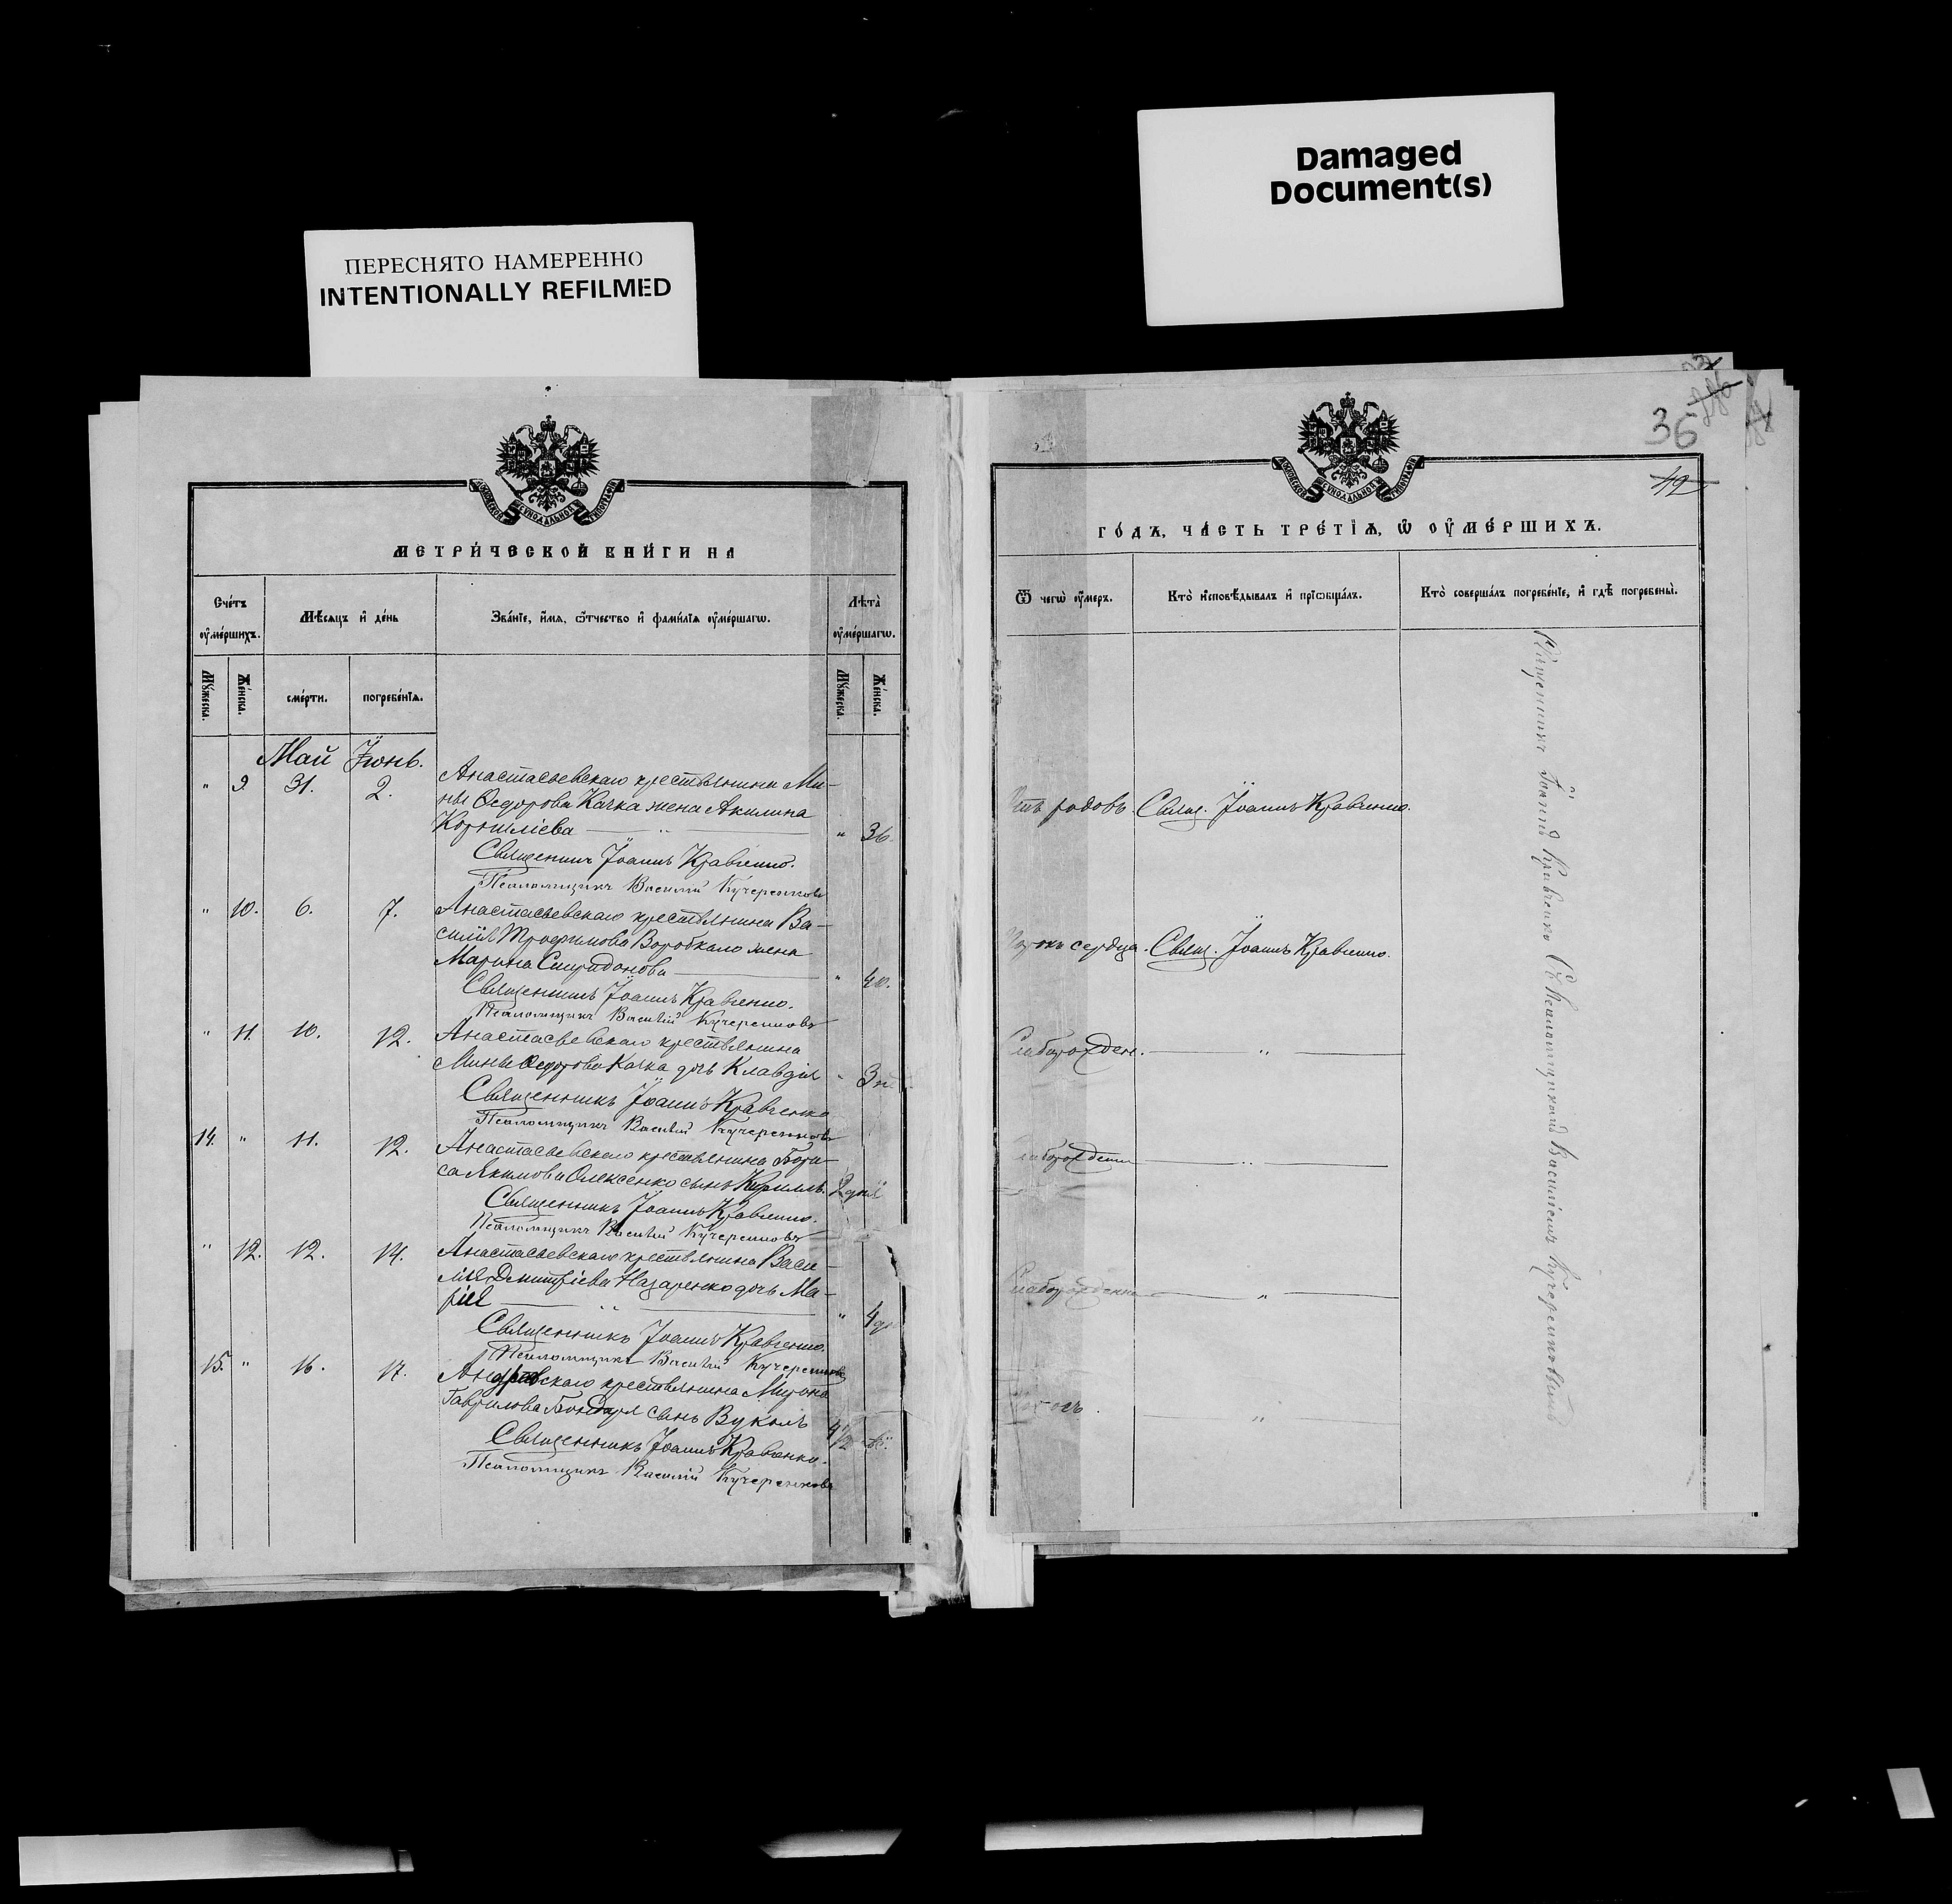 Damaged
Document(s)
ПЕРЕСНЯТО НАМЕРЕННО
INTENTIONALLY REFILMED
МЕТРИ́ЧЕСКОЙ КНИ́ГИ НА
Сче́тъ ᲂу҆ме́ршихъ.
Мѣ́сяцъ и҆ де́нь
Зва́нїе, и҆́мя, ѻ҆́тчество и҆ фами́лїя ᲂу҆ме́ршагѡ.
Лѣ́та ᲂу҆ме́ршагѡ.
Мꙋ́жеска.
Же́нска.
сме́рти.
погребе́нїѧ.
Мꙋ́жеска.
Же́нска.
Май Іюнь.
" 9. 31. 2. Анастасьевскаго крестьянина Ми-
ны Ѳедорова Качка жена Акилина
Корнилiева " 36.
Священникъ Іоаннъ Кравченко.
Псаломщикъ Василій Кучеренковъ
" 10. 6. 7. Анастасьевскаго крестьянина Ва-
силія Трофимова Воробкало жена
Марина Спиридонова " 40.
Священникъ Іоаннъ Кравченко.
Псаломщикъ Василій Кучеренковъ
" 11. 10. 12. Анастасьевскаго крестьянина
Мины Ѳедорова Качка дочь Клавдія " 3
Священникъ Іоаннъ Кравченко
Псаломщикъ Василій Кучеренковъ
14. " 11. 12. Анастасьевскаго крестьянина Бори-
са Якимова Олексенко сынъ Кириллъ. 2 дня
Священникъ Іоаннъ Кравченко.
Псаломщикъ Василій Кучеренковъ
" 12. 12. 14. Анастасьевскаго крестьянина Васи-
лія Дмитріева Назаренко дочь Ма-
рія " " 4
Священникъ Іоаннъ Кравченко.
Псаломщикъ Василій Кучеренковъ
15. " 16. 17. крестьянина Мирона
Гаврилова Бондаря сынъ Вуколъ 4/2
Священникъ Іоаннъ Кравченко.
Псаломщикъ Василій Кучеренковъ
36
42
ГО́ДЪ, ЧА́СТЬ ТРЕ́ТЇѦ, Ѽ ОУ҆МЕ́РШИХЪ.
Ѿ чегѡ̀ ᲂу҆́меръ.
Кто̀ и҆сповѣ́дывалъ и҆ прїѡбща́лъ.
Кто̀ соверша́лъ погребе́нїе, и҆ гдѣ̀ погребены̀.
родовъ. Свящ. Іоаннъ Кравченко.
Порокъ сердца. Свящ. Іоаннъ Кравченко.
Слаборожден. "
Слаборожденн "
Слаборожденн "
"
Священникъ Іоаннъ Кравченко съ псаломщикомъ Василіемъ Кучеренковымъ